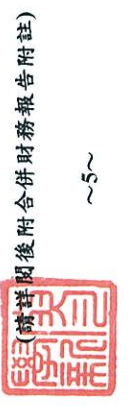 (請詳閱後附合併財務報告附註)
~5~